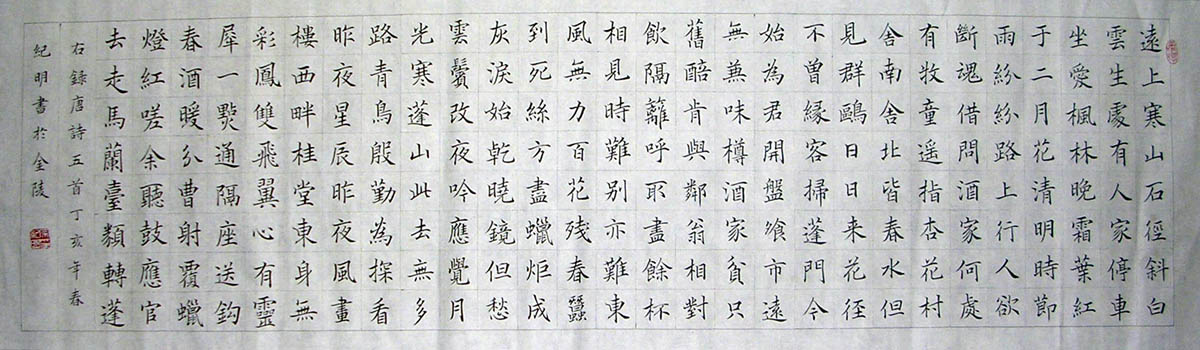 遠上寒山石徑斜白
雲生處有人家停車
坐愛楓林晚霜葉紅
于二月花清明時節
雨紛紛路上行人欲
斷魂借問酒家何處
有牧童遥指杏花村
舍南舍北皆春水但
見群鷗日日来花径
不曾緣客掃蓬門今
始為君開盤飧市遠
無兼味樽酒家貧只
舊醅肯與鄰翁相對
飲隔籬呼取盡餘杯
相見時難别亦難東
風無力百花殘春蠶
到死絲方盡蠟炬成
灰淚始乾曉鏡但愁
雲鬢改夜吟應覺月
光寒蓬山此去無多
路青鳥殷勤為探看
昨夜星辰昨夜風畫
樓西畔桂堂東身無
彩鳳雙飛翼心有靈
犀一點通隔座送鈎
春酒暖分曹射覆蠟
燈紅嗟余聽鼓應官
去走馬蘭臺類轉蓬
右錄唐詩五首丁亥年春
紀明書於金陵